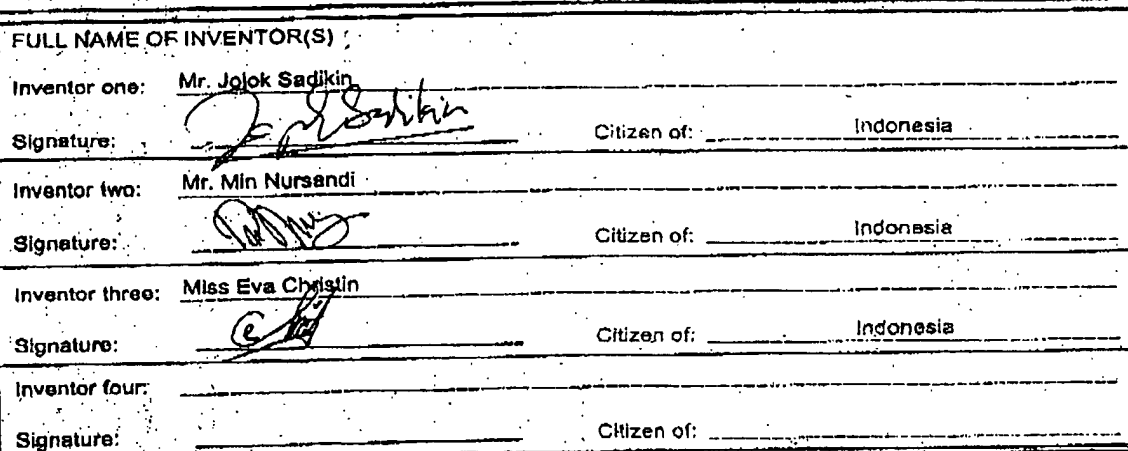 FULL NAME OF INVENTOR(S)
Inventor one: Mr. Jojok Sadikin
Signature: Sadikin Citizen of: Indonesia
Inventor two: Mr. Min Nursandi
Signature: Citizen of: Indonesia
Inventor three: Miss Eva Christin
Signature: Citizen of: Indonesia
Inventor four:
Signature: Citizen of: